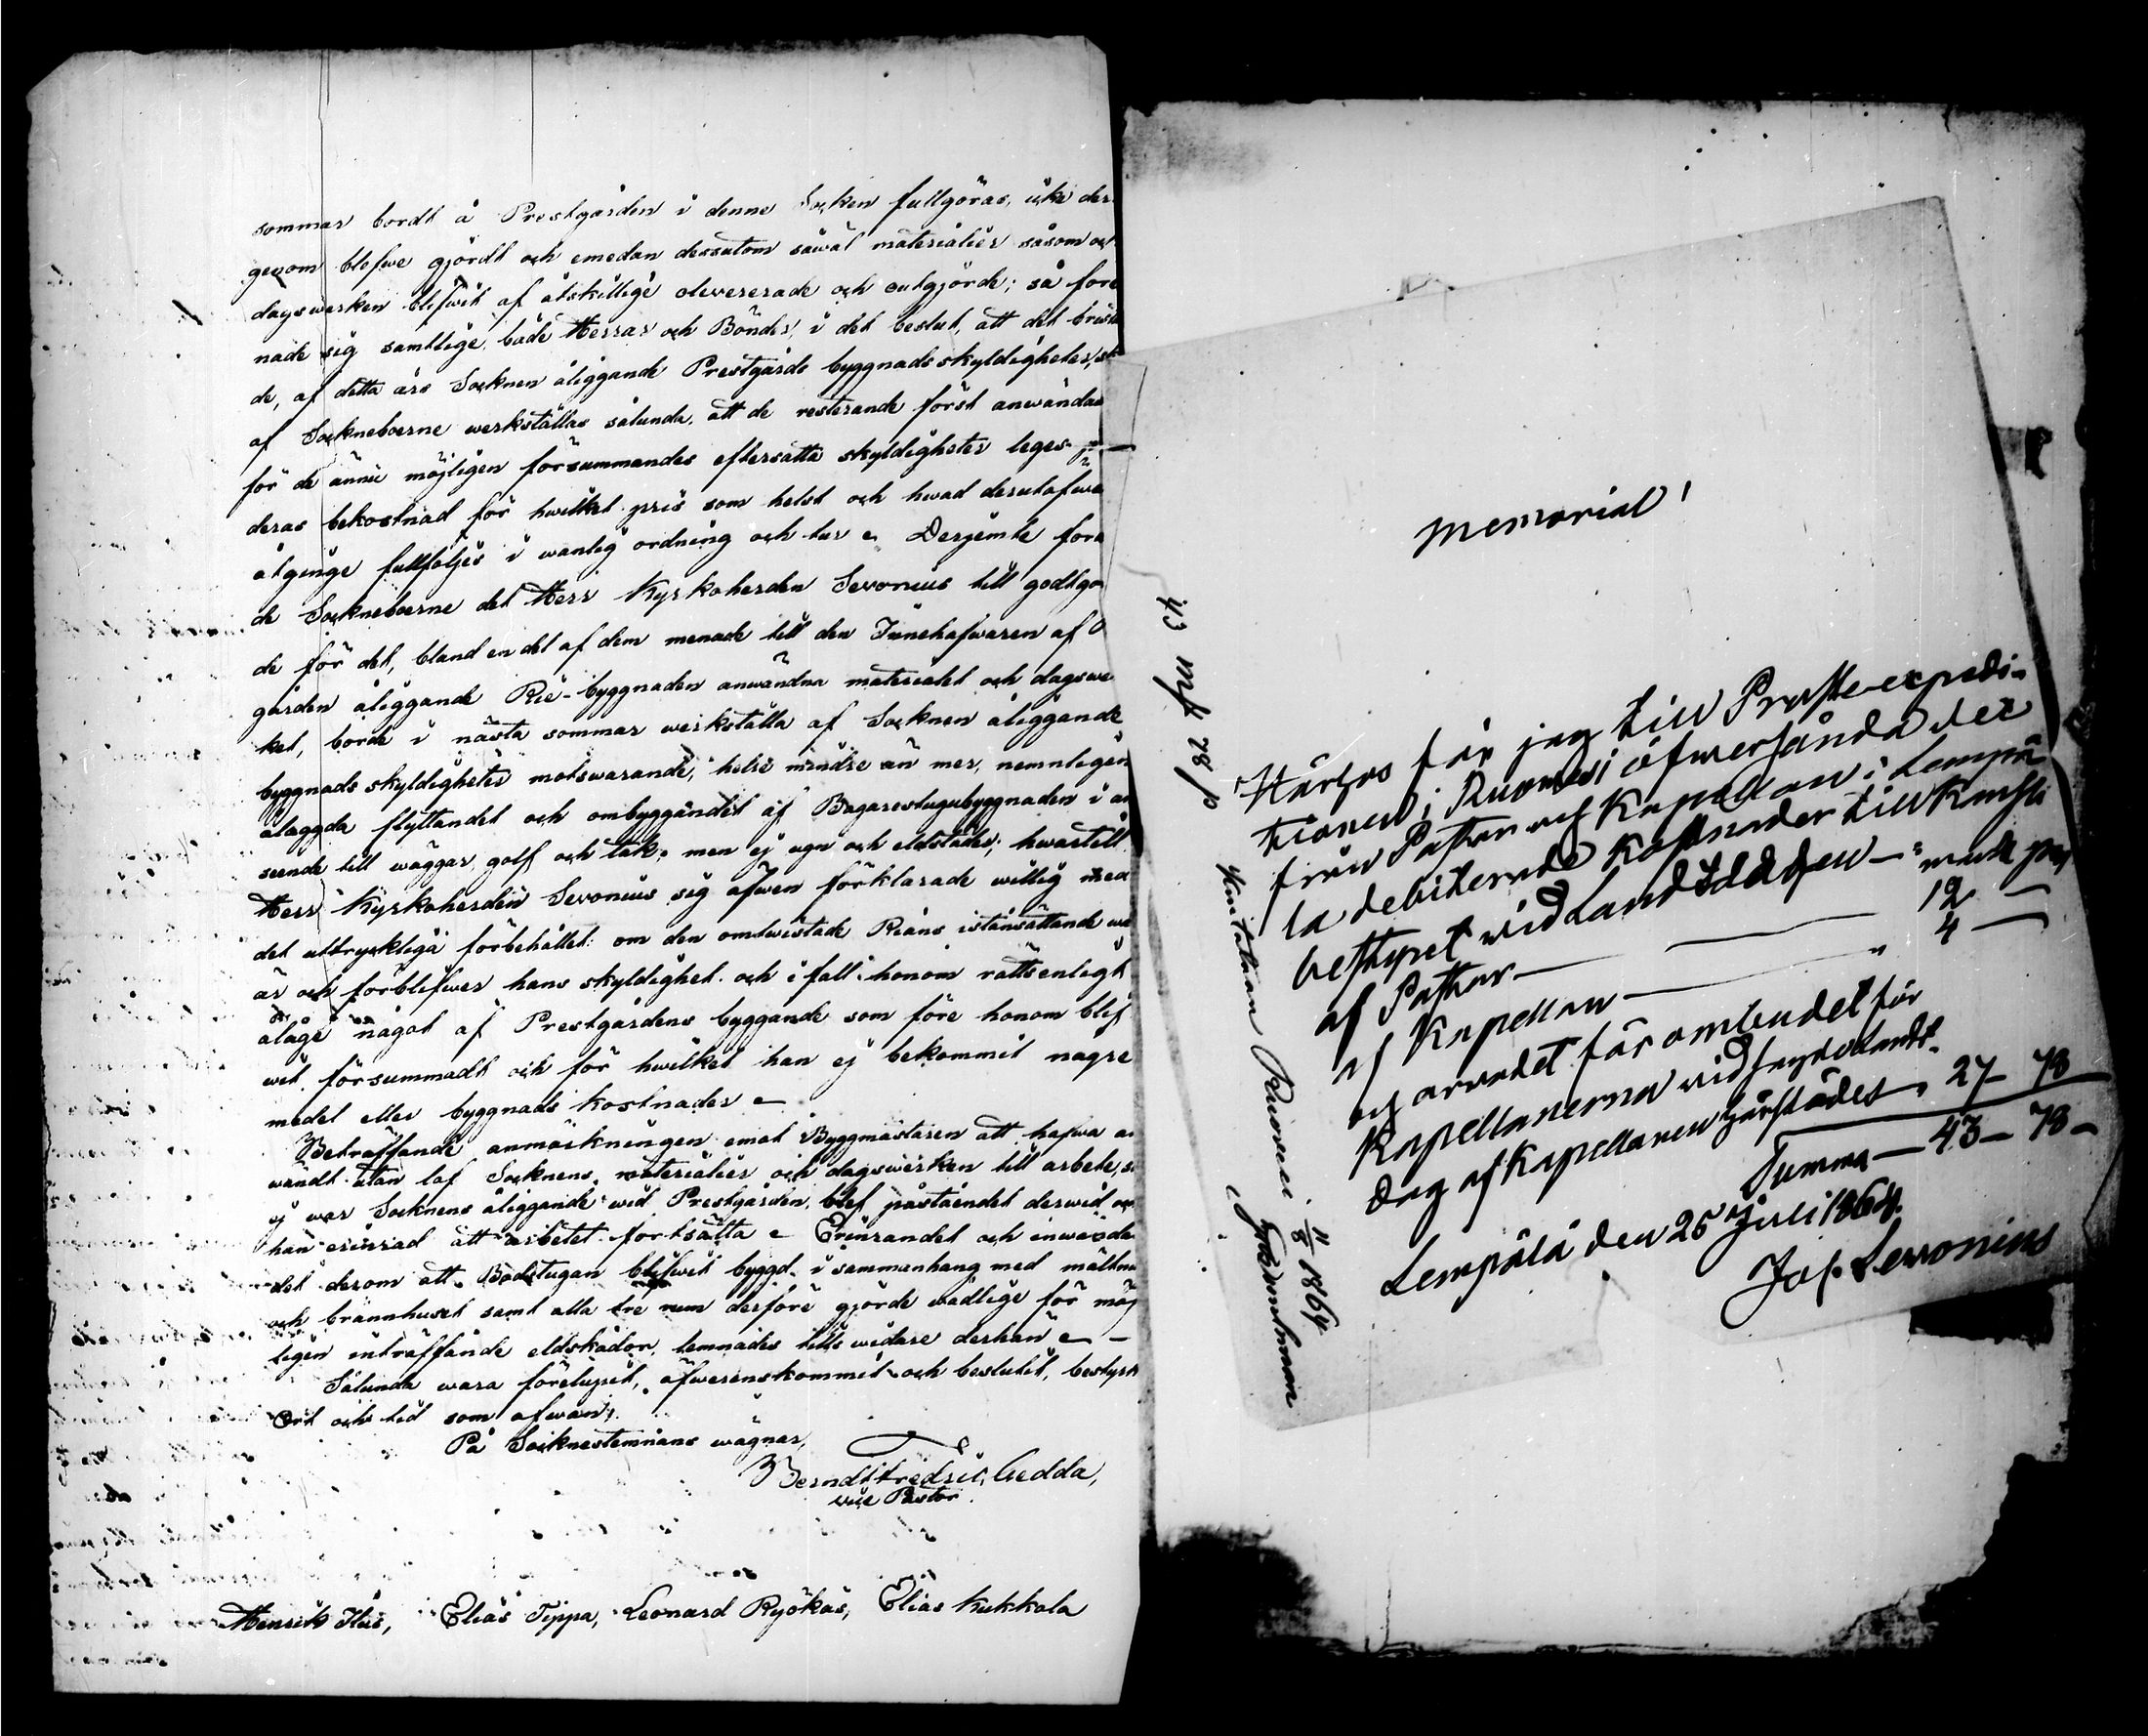 sommar bordt å Prestgården i denne Socken fullgöras, icke der
genom blefwe gjördt och emedan dessutom såwäl materialier såsom och
dagswerken blifwit af åtskillige levererade och utgjörde; så före
nade sig samtlige, både Herrar och Bönder, i det beslut, att det brista
de, af detta års Socknen åliggande Prestgårds byggnads skyldigheter, sk
af Sockneboerne werkställas sålunda, att de resterande först anwändas
för de ännu möjligen försummandes eftersatta skyldigheter leges på
deras bekostnad för hwilket pris som helst och hwad derutöfwer
åtginge fullföljes i wanlig ordning och tur. Derjemte före
de Sockneboerne det Herr Kyrkoherden Sevonius till godtgö
de för det, bland en del af dem menade till den Innehafwaren af
gården åliggande Rie-byggnaden anwändna materialet och dagswer
ket, borde i nästa sommar werkställa af Socknen åliggande
byggnads skyldigheter motswarande, helre mindre än mer, nemnligen
ålaggda flyttandet och ombyggandet af Bagarestugubyggnaden i an
seende till wäggar, golf och tak, men ej ugn och eldstäder; hwartill
Herr Kyrkoherden Sevonius sig äfwen förklarade willig med
det uttryckliga förbehållet: om den omtwistade Rians istånsättande
är och förblifwer hans skyldighet, och i fall honom rättsenligt
åläge något af Prestgårdens byggande som före honom blif
wit försummadt och för hwilket han ej bekommit någre
medel eller byggnads kostnader
Beträffande anmärkningen emot Byggmästaren att hafwa an
wändt utan lof Socknens materialier och dagswerken till arbete, s
ej war Socknens åliggande wid Prestgården, blef påståendet derwid och
han erinrad att arbetet fortsätta. Erinrandet och inwände
det derom att Badstugan blifwit byggd i sammanhang med mältn
och brännhuset samt alla tre rum derföre gjorde wådlige för möj
ligen inträffande eldskador, lemnades tills widare derhän
Sålunda wara förelupit, öfwerenskommit och beslutit, bestyrk
Ort och tid som ofwan;
På Socknestemnans wägnar,
Berndt Fredric Gedda,
vice Pastor.
Henrik Ilus, Elias Tippa, Leonard Ryökäs, Elias Kukkola
Memorial
Härhos får jag till Prosteexpedi-
tionen i Ruovesi öfwersända der
från Pastor och Kapellan i Lempä
lä debiterade kostnader till kansli
bestyret wid Landtdagen mark pen
af Pastor 12 —
af Kapellan " 4 —
och arvodet för ombudet för
Kapellanerna wid sagde Landt-
dag af Kapellanen härstädes " 27 — 78
Summa — 43 — 78 —
Lempälä den 25 Juli 1864.
Jos. Sevonius
43 m/ 78 p
kvitteras Ruovesi 11/8 1864